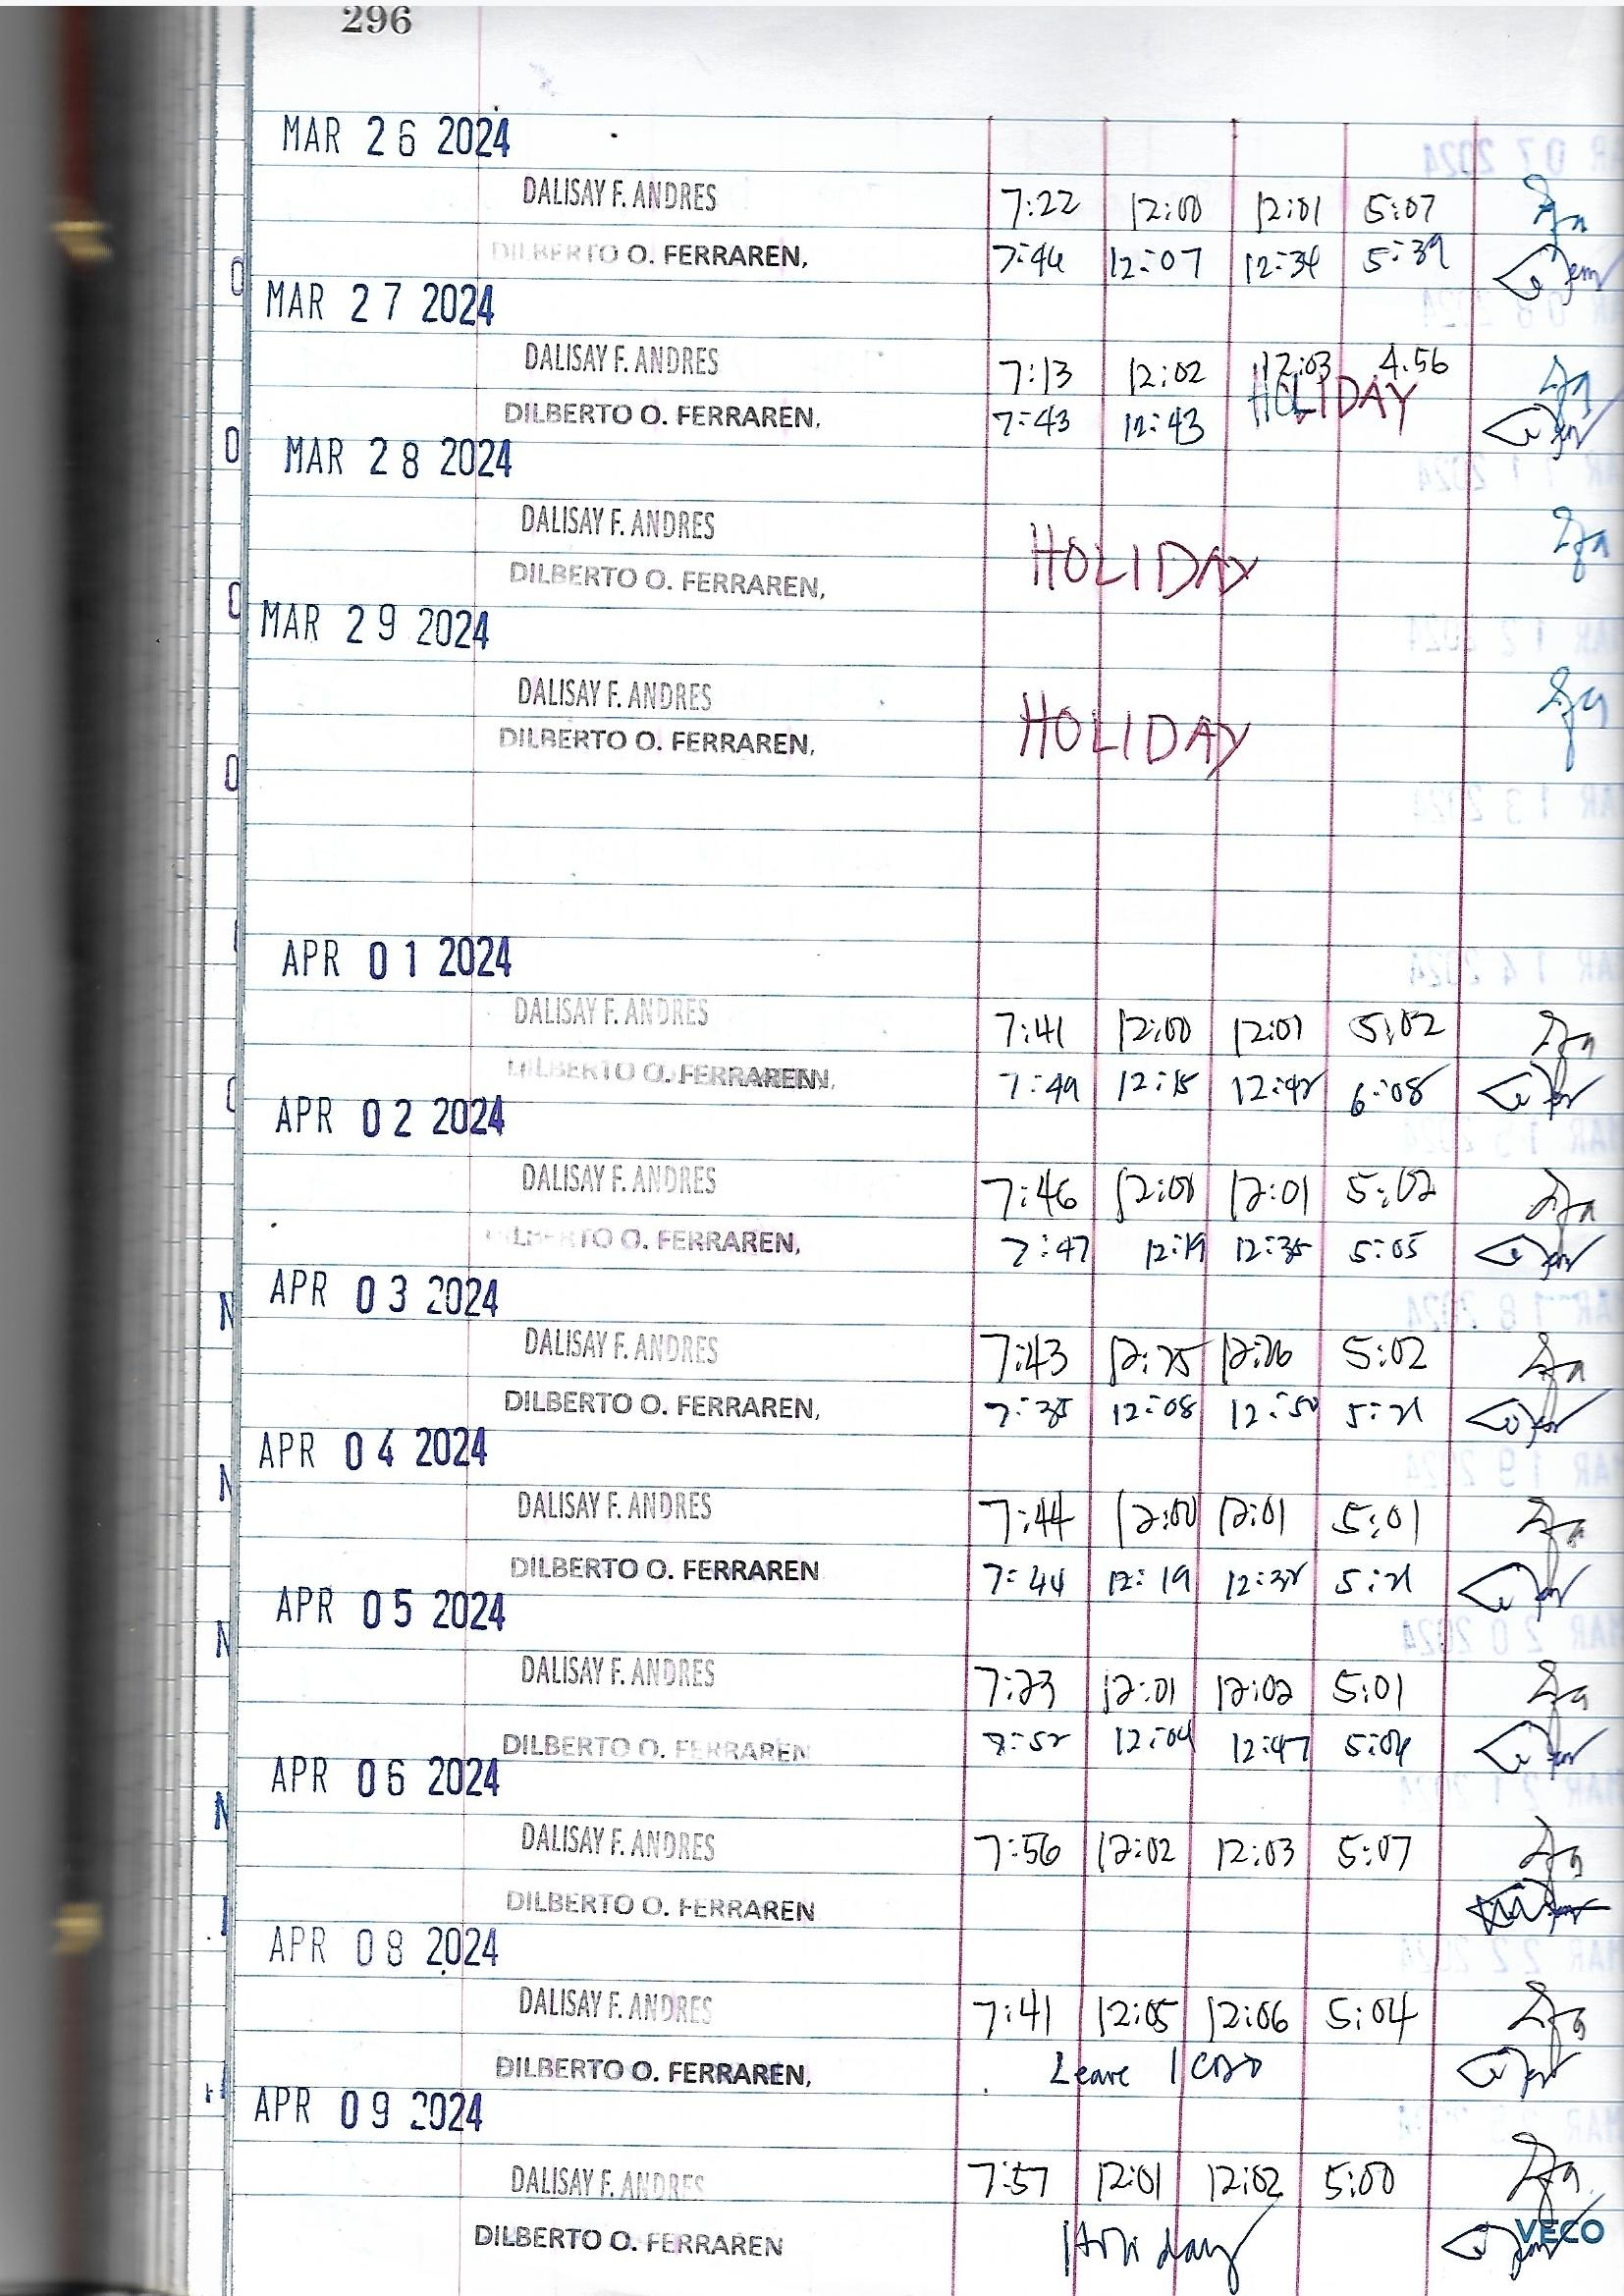 296
MAR 26 2024
DALISAY F. ANDRES 7:22 12:00 12:01 5:07
DILBERTO O. FERRAREN, 7:46 12:07 12:34 5:39
MAR 27 2024
DALISAY F. ANDRES 7:13 12:02 12:03 4.56
HOLIDAY
DILBERTO O. FERRAREN, 7:43 12:43
MAR 28 2024
DALISAY F. ANDRES
HOLIDAY
DILBERTO O. FERRAREN,
MAR 29 2024
DALISAY F. ANDRES
HOLIDAY
DILBERTO O. FERRAREN,
APR 01 2024
DALISAY F. ANDRES 7:41 12:00 12:01 5:02
DILBERTO O. FERRAREN, 7:49 12:15 6:08
APR 02 2024
DALISAY F. ANDRES 7:46 12:00 12:01 5:02
DILBERTO O. FERRAREN, 7:47 12:19 12:35 5:05
APR 03 2024
DALISAY F. ANDRES 7:43 12:25 12:26 5:02
DILBERTO O. FERRAREN, 7:35 12:08 12:50 5:21
APR 04 2024
DALISAY F. ANDRES 7:44 12:00 12:01 5:01
DILBERTO O. FERRAREN 7:44 12:19 5:21
APR 05 2024
DALISAY F. ANDRES 7:23 12:01 12:02 5:01
DILBERTO O. FERRAREN 7:52 12:04 12:47 5:04
APR 06 2024
DALISAY F. ANDRES 7:56 12:02 12:03 5:07
DILBERTO O. FERRAREN
APR 08 2024
DALISAY F. ANDRES 7:41 12:05 12:06 5:04
DILBERTO O. FERRAREN, Leave
APR 09 2024
DALISAY F. ANDRES 7:57 12:01 12:02 5:00
DILBERTO O. FERRAREN Holiday
VECO